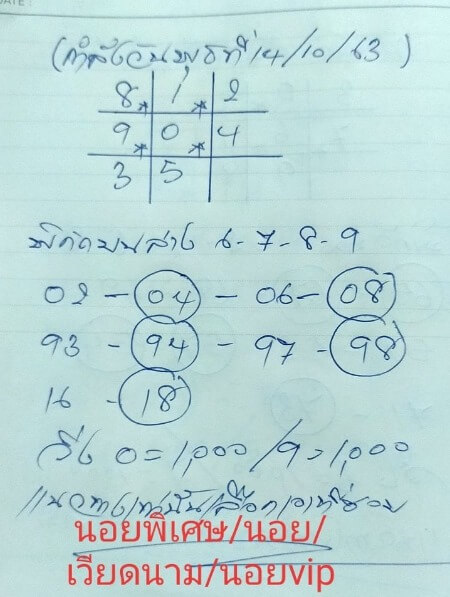 DATE:
(กำลังวันพุธที่ 14/10/63)
8 * 1 * 2
9 * 0 * 4
3 5
พิกัดบนล่าง 6-7-8-9
02 - 04 - 06 - 08
93 - 94 - 97 - 98
16 - 18
วิ่ง 0 = 1,000 / 9 = 1,000
แนวทางเท่านั้น/เลือกเอาที่ชอบ
นอยพิเศษ/นอย/
เวียดนาม/นอยvip